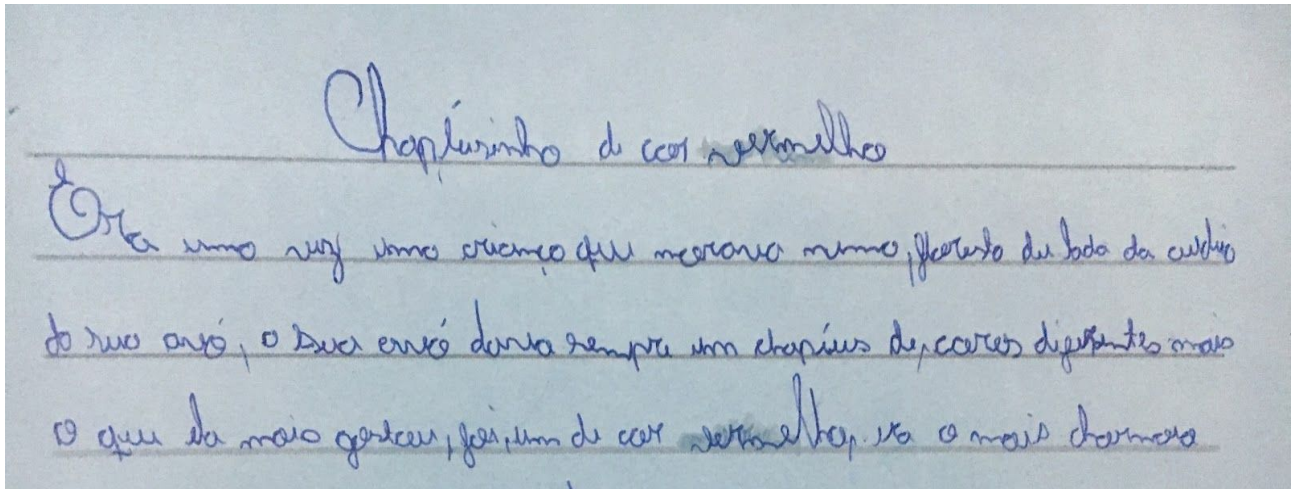 Chapéuzinho de cor vermelho
Era uma vez uma criança que morava numa floresta du lado da aldeia
da sua avó, a sua avó dava sempre um chapéus de cores diferentes mais
o que ela mais gostou, foi, um de cor vermelho, era o mais charmoso